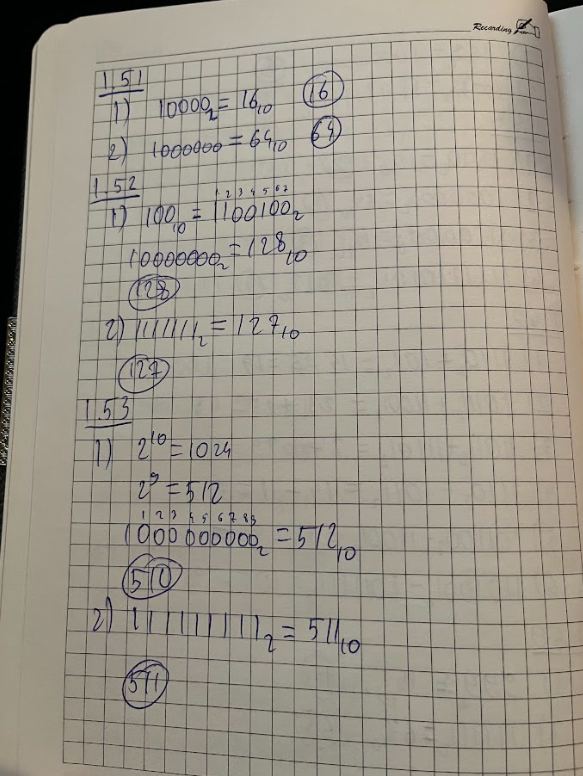 Recording
1.51
1) 10000₂ = 16₁₀ 16
2) 1000000 = 64₁₀ 64
1.52
1 2 3 4 5 6 7
1) 100₁₀ = 1100100₂
10000000₂ = 128₁₀
128
2) 1111111₂ = 127₁₀
127
1.53
1) 2¹⁰ = 1024
2⁹ = 512
1 2 3 4 5 6 7 8 9
1000000000₂ = 512₁₀
510
2) 111111111₂ = 511₁₀
511